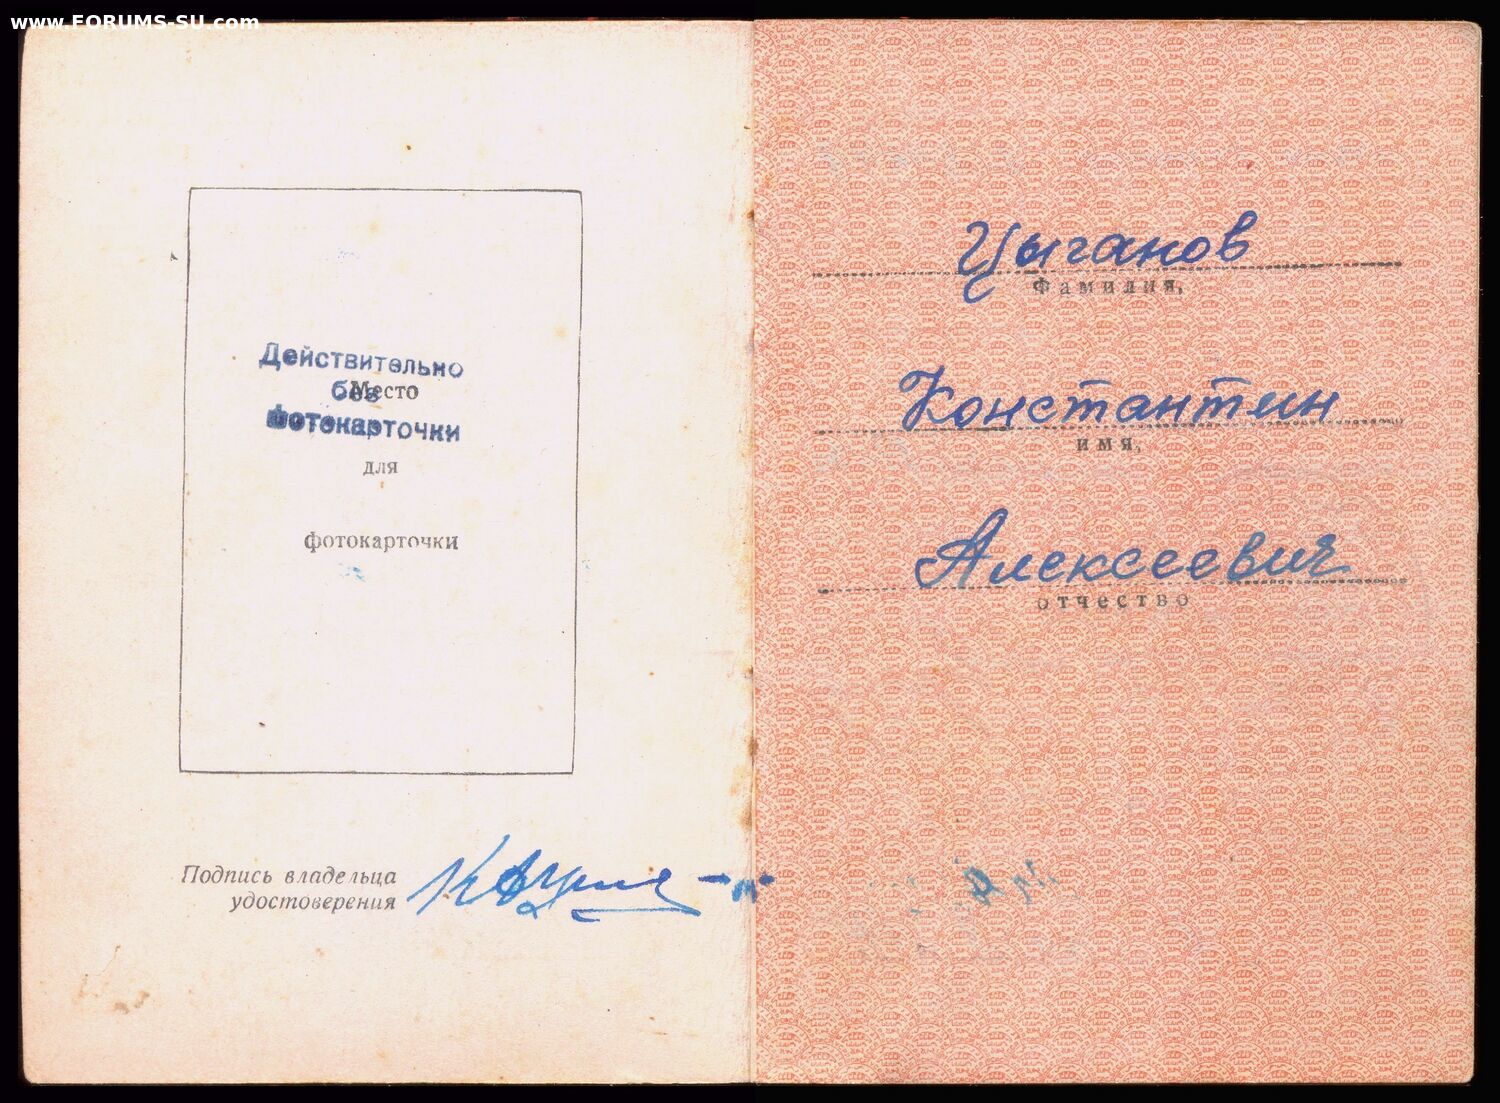 www.FORUMS-SU.com
Действительно
без
фотокарточки
Место
для
фотокарточки
Подпись владельца
удостоверения
Цыганов
Фамилия,
Константин
имя,
Алексеевич
отчество